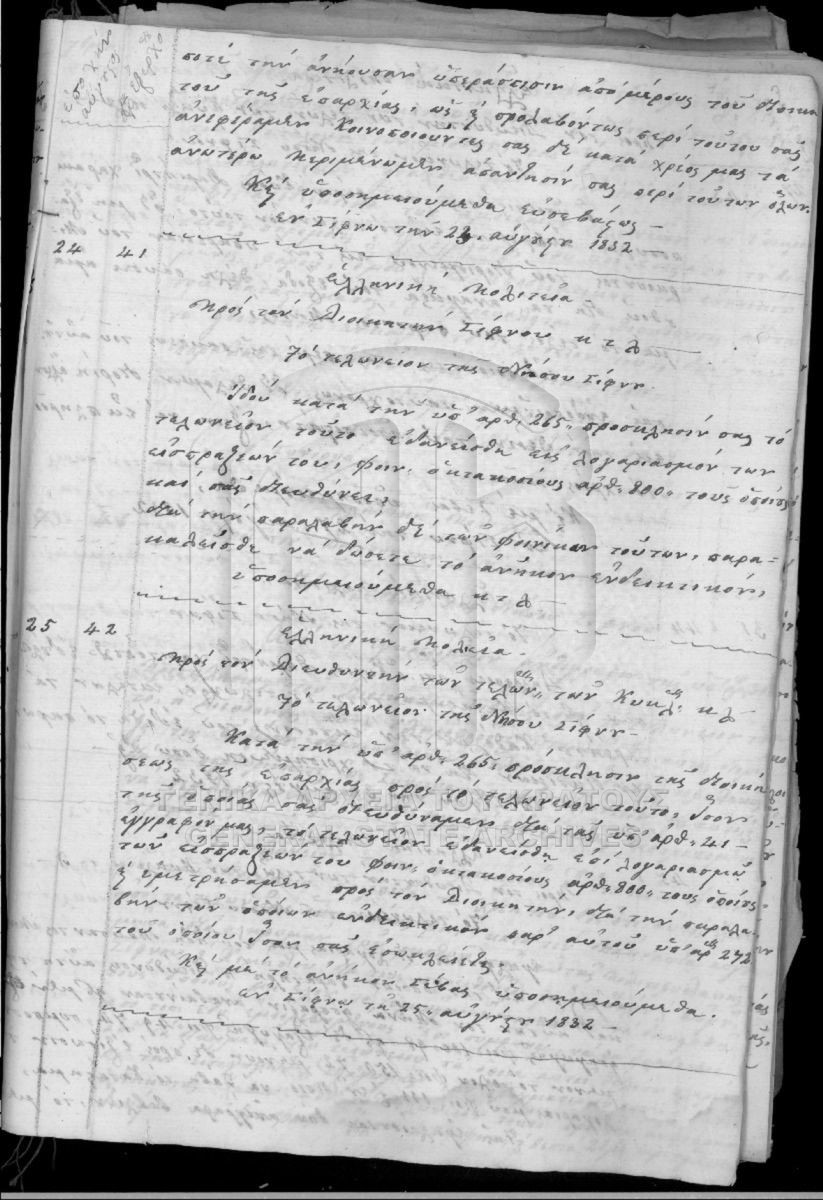 ποτέ τὴν ἀνήκουσαν ὑπεράσπισιν ἀπὸ μέρους τοῦ Διοικη
τοῦ τῆς ἐπαρχίας, ὡς ἐ προλαβόντως περὶ τούτου σᾶς
ἀνεφέραμεν Κοινοποιοῦντες σας δὲ κατὰ χρέος μας τὰ
ἀνωτέρω περιμένωμεν ἀπάντησίν σας περὶ τούτων ὅλων.
Κὴ ὑποσημειούμεθα εὐσεβάστως –
ἐν Σίφνῳ τὴν 23 αὐγούςου 1832
24 41
Ἑλληνικὴ Πολιτεία –
Πρὸς τὸν Διοικητὴν Σίφνου κ τ λ
Τὸ τελωνεῖον τῆς Νήσου Σίφνου
Ἰδοὺ κατὰ τὴν ὑπ' ἀρθ: 265, προσκλησίν σας τὸ
τελωνεῖον τοῦτο ἐδανείσθη εἰς λογαριασμὸν τῶν
εἰσπράξεών του, φοιν: ὀκτακοσίους ἀρθ: 800, τοὺς ὁποίους
καὶ σᾶς διευθύνει,
διὰ τὴν παραλαβὴν δὲ τῶν φοινίκων τούτων, παρα=
καλεῖσθε νὰ δώσετε τὸ ἀνῆκον ἐνδεικτικόν,
ὑποσημειούμεθα κ τ λ –
25 42
Ἑλληνικὴ Πολιτεία.
Πρὸς τὸν Διευθυντὴν τῶν τελων. τῶν Κυκλ. κ λ
Τὸ τελωνεῖον τῆς Νήσου Σίφνου –
Κατὰ τὴν ὑπ' ἀρθ: 265, πρόσκλησιν τῆς διοική
σεως τῆς ἐπαρχίας πρὸς τὸ τελωνεῖον τοῦτο, ἶσον
τῆς ὁποίας σας διευθύναμεν διὰ τῆς ὑπ' ἀρθ: 41 –
ἐγγράφου μας, τὸ τελωνεῖον ἐδανείσθη ἐπὶ λογαριασμῷ
τῶν εἰσπράξεών του φοιν: ὀκτακοσίους ἀρθ: 800, τοὺς ὁποίους
ἐμετρήσαμεν πρὸς τὸν Διοικητὴν, διὰ τὴν παραλα
βὴν τῶν ὁποίων ἐνδεικτικὸν παρ' αὐτοῦ ὑπ' ἀρ 272
τοῦ ὁποίου ἶσον σᾶς ἐσωκλείεται,
Κὴ μὲ τὸ ἀνῆκον Σέβας ὑποσημειούμεθα.
ἐν Σίφνῳ τῇ 25, αὐγούςου 1832 –
ΓΕΝΙΚΑ ΑΡΧΕΙΑ ΤΟΥ ΚΡΑΤΟΥΣ
GENERAL STATE ARCHIVES